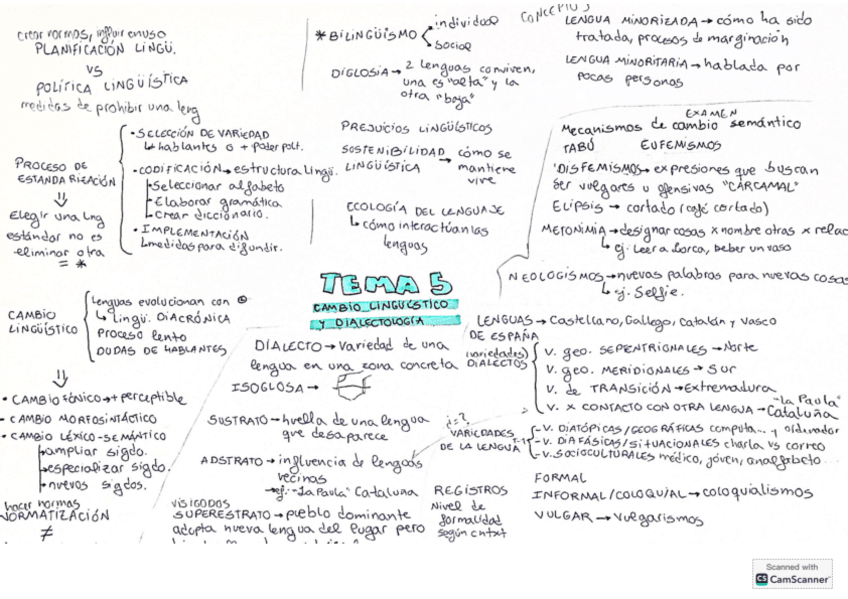 crear normas, influir en uso
PLANIFICACIÓN LINGÜ.
VS
POLÍTICA LINGÜÍSTICA
medidas de prohibir una leng
PROCESO DE
ESTANDARIZACIÓN
⇓
Elegir una lng
estándar no es
eliminar otra
= *
• SELECCIÓN DE VARIEDAD
↳ hablantes o + poder polt.
• CODIFICACIÓN → estructura lingü.
Seleccionar alfabeto
Elaborar gramática
Crear diccionario.
• IMPLEMENTACIÓN
↳ medidas para difundir.
* BILINGÜISMO
individual
social
DIGLOSIA → 2 lenguas conviven,
una es "alta" y la
otra "baja"
PREJUICIOS LINGÜÍSTICOS
SOSTENIBILIDAD
LINGÜÍSTICA
→ cómo se
mantiene
vive
ECOLOGÍA DEL LENGUAJE
↳ cómo interactúan las
lenguas
CONCEPTOS
LENGUA MINORIZADA → cómo ha sido
tratada, procesos de marginación
LENGUA MINORITARIA → hablada por
pocas personas
EXAMEN
Mecanismos de cambio semántico
TABÚ EUFEMISMOS
DISFEMISMOS → expresiones que buscan
ser vulgares u ofensivas "CARCAMAL"
ELIPSIS → cortado (café cortado)
METONIMIA → designar cosas x nombre otras x relac
↳ ej. Leer a Lorca, beber un vaso
NEOLOGISMOS → nuevas palabras para nuevas cosas
↳ ej. Selfie.
TEMA 5
CAMBIO LINGÜÍSTICO
Y DIALECTOLOGÍA
CAMBIO
LINGÜÍSTICO
Lenguas evolucionan con
↳ lingü. DIACRÓNICA
Proceso lento
DUDAS DE HABLANTES
⇓
• CAMBIO FÓNICO → + perceptible
- CAMBIO MORFOSINTÁCTICO
• CAMBIO LÉXICO-SEMÁNTICO
ampliar sigdo.
especializar sigdo.
nuevos sigdos.
hacer normas
NORMATIZACIÓN
≠
DIALECTO → variedad de una
lengua en una zona concreta
ISOGLOSA →
SUSTRATO → huella de una lengua
que desaparece
ADSTRATO → influencia de lenguas
vecinas
→ ej. "La Paula" Cataluña
VISIGODOS
SUPERESTRATO → pueblo dominante
adopta nueva lengua del lugar pero
LENGUAS → Castellano, Gallego, Catalán y Vasco
DE ESPAÑA
(variedades)
DIALECTOS
V. geo. SEPENTRIONALES → Norte
V. geo. MERIDIONALES → Sur
V. de TRANSICIÓN → Extremadura
V. x CONTACTO CON OTRA LENGUA → "La Paula" Cataluña
VARIEDADES
DE LA LENGUA
- V. DIATÓPICAS/GEOGRÁFICAS computa... y ordenador
- V. DIAFÁSICAS/SITUACIONALES charla vs correo
- V. SOCIOCULTURALES médico, joven, analfabeto...
REGISTROS
Nivel de
formalidad
según cntxt
FORMAL
INFORMAL/COLOQUIAL → coloquialismos
VULGAR → vulgarismos
Scanned with
CS CamScanner